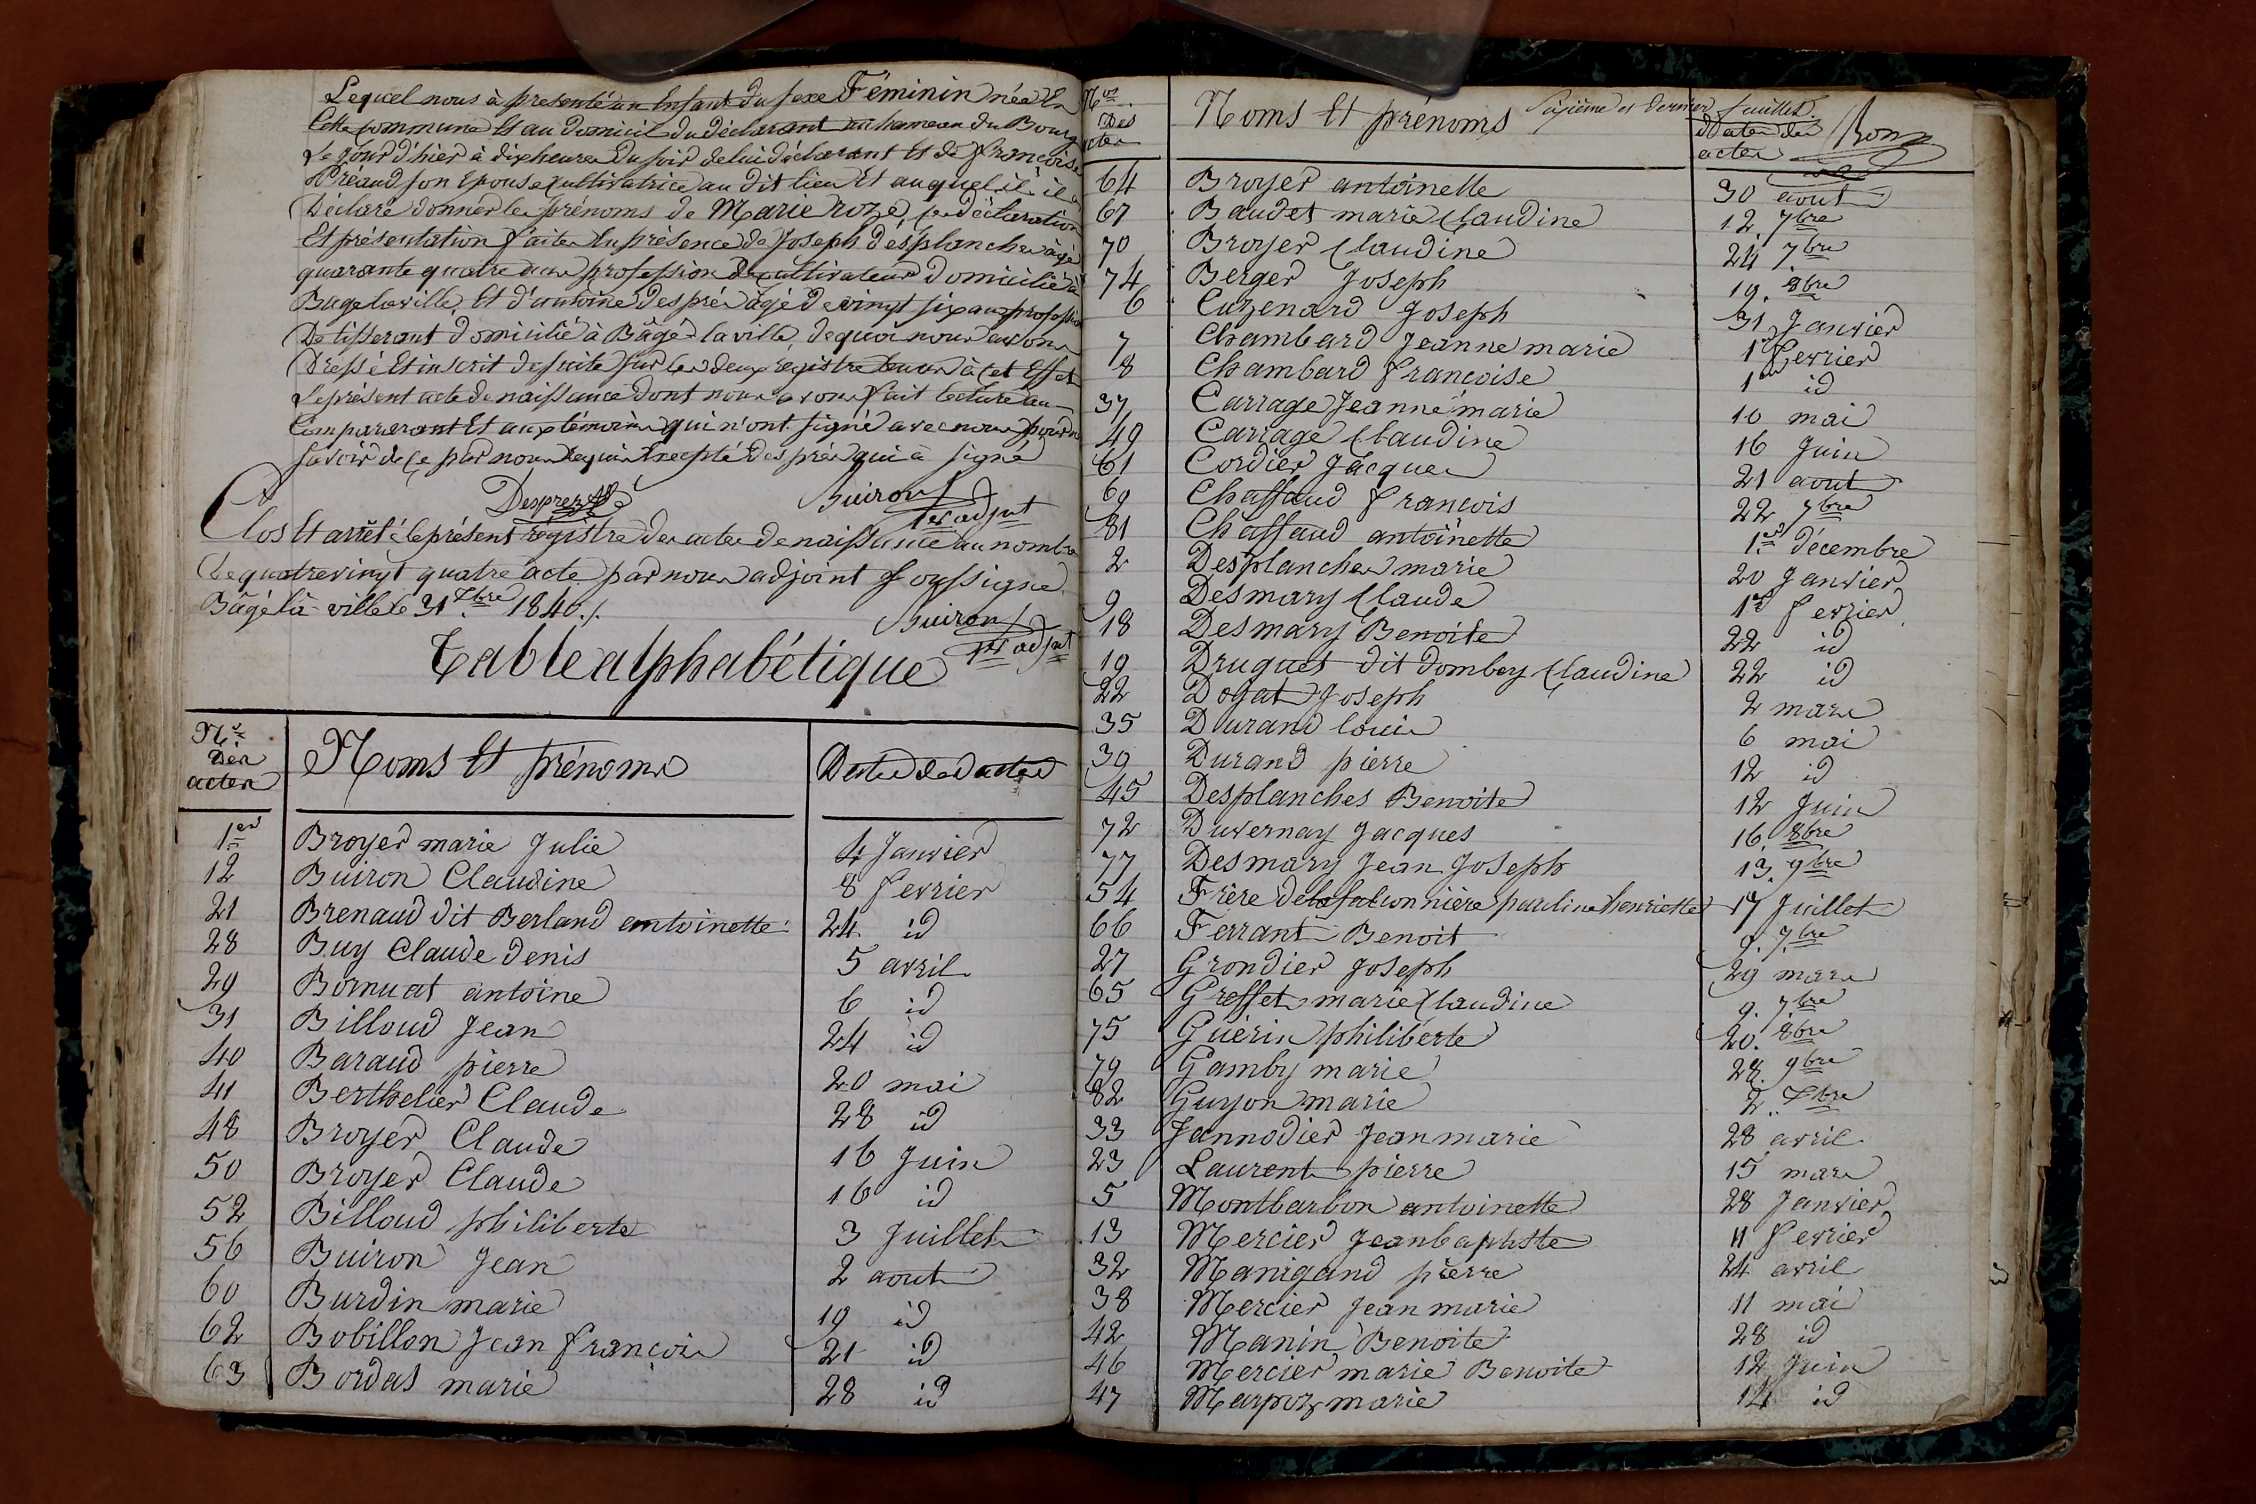 Lequel nous à presenté un Enfant du sexe Féminin née En
Cette commune Et au Domicil du déclarant au hameau du Bourg
Le jour d'hier à dix heures du soir de lui déclarant Et de françoise
Préaud son Epouse cultivatrice au dit lieu Et auquel il à
Déclaré donner les prénoms de Marie roze, se déclaration
Et présentation faites En présence de Joseph desplanches âgé
quarante quatre ans profession de cultivateur domicilié à
Bagé laville, Et d'antoine després âgé de vingt six ans profession
De tisserant domicilié à Bâgé-laville, de quoi nous avons
Dressé Et inscrit de suite sur les deux registre tenus à cet Effet
Le présent acte de naissance dont nous avons fait lecture au
Comparerant Et aux témoins qui n'ont signé avec nous pour ne
savoir de ce par nous requis Excepté després qui à signé
Desprez
Buiron
1er adjnt
Clos Et arrêté le présent régistre des actes de naissance au nombre
De quatrevingt quatre acte par nous adjoint soussigné
Bâgé là-ville le 31 Xbre 1840 ./.
Buiron
1er adjnt
Table alphabétique
Nos Des actes Noms Et prénoms Dates des actes
1er Broyer marie Julie 4 Janvier
12 Buiron Claudine 8 fevrier
21 Brenaud dit Berland antoinette 24 id
28 Buy Claude denis 5 avril
29 Bornuat antoine 6 id
31 Billoud Jean 24 id
40 Baraud pierre 20 mai
41 Berthelier Claude 28 id
48 Broyer Claude 16 Juin
50 Broyer Claude 16 id
52 Billoud philiberte 3 Juillet
56 Buiron Jean 2 aout
60 Burdin marie 19 id
62 Bobillon Jean françois 21 id
63 Bordas marie 28 id
Sixième et dernier feuillet.
Nos des actes Noms Et prénoms dates des actes
64 Broyer antoinette 30 aout
67 Baudet marie Claudine 12. 7bre
70 Broyer Claudine 24 7bre
74 Berger Joseph 19. 8bre
6 Cuzenard Joseph 31 Janvier
7 Chambard Jeanne marie 1er fevrier
8 Chambard françoise 1er id
37 Carrage Jeanne marie 10 mai
49 Cariage Claudine 16 Juin
61 Cordier Jacques 21 aout
69 Chaffaud francois 22 7bre
81 Chaffaud antoinette 1er décembre
2 Desplanches marie 20 Janvier
9 Desmary Claude 1er fevrier
18 Desmary Benoite 22 id
19 Druguet dit dombey Claudine 22 id
22 Dogat Joseph 2 mars
35 Durand louis 6 mai
39 Durand pierre 12 id
45 Desplanches Benoite 12 Juin
72 Duvernay Jacques 16. 8bre
77 Desmary Jean Joseph 13. 9bre
54 Frère de la falconnière pauline henriette 17 Juillet
66 Ferrant Benoit 9. 7bre
27 Grondier Joseph 29 mars
65 Greffet marie Claudine 9. 7bre
75 Guérin philiberte 20. 8bre
79 Gamby marie 28. 9bre
82 Guyon marie 2.. Xbre
33 Jannodier Jean marie 28 avril
23 Laurent pierre 15 mars
5 Montbarbon antoinette 28 Janvier
13 Mercier Jean baptiste 11 fevrier
32 Manigand pierre 24 avril
38 Mercier Jean marie 11 mai
42 Manin Benoite 28 id
46 Mercier marie Benoite 12 Juin
47 Marpoz marie 14 id